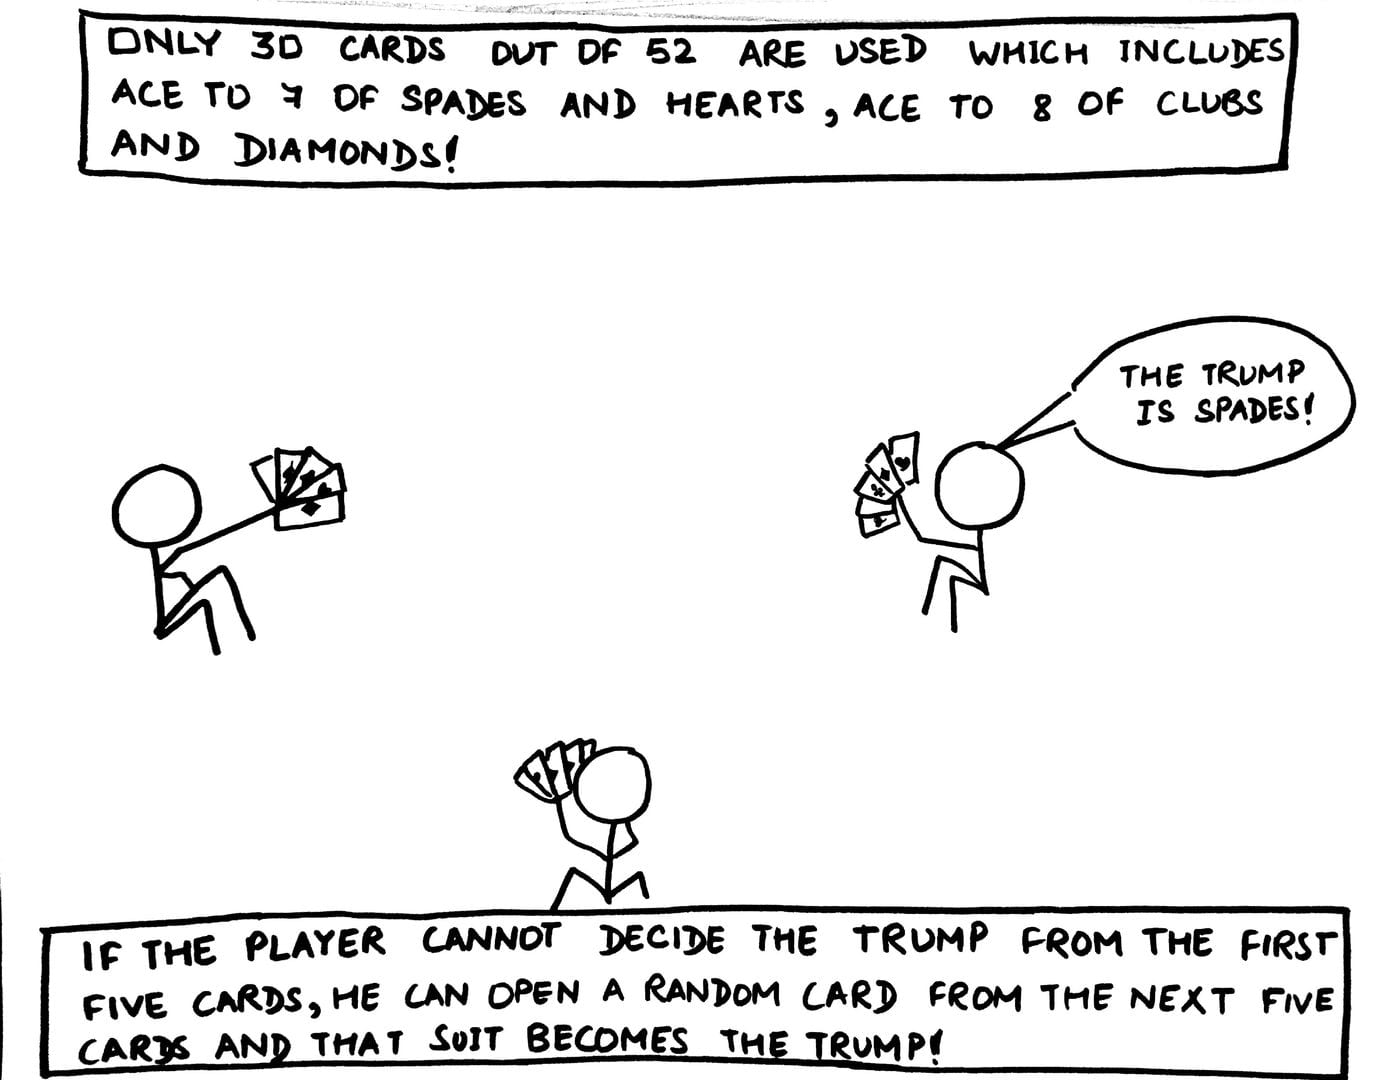 ONLY 30 CARDS OUT OF 52 ARE USED WHICH INCLUDES
ACE TO 7 OF SPADES AND HEARTS, ACE TO 8 OF CLUBS
AND DIAMONDS!
THE TRUMP
IS SPADES!
IF THE PLAYER CANNOT DECIDE THE TRUMP FROM THE FIRST
FIVE CARDS, HE CAN OPEN A RANDOM CARD FROM THE NEXT FIVE
CARDS AND THAT SUIT BECOMES THE TRUMP!